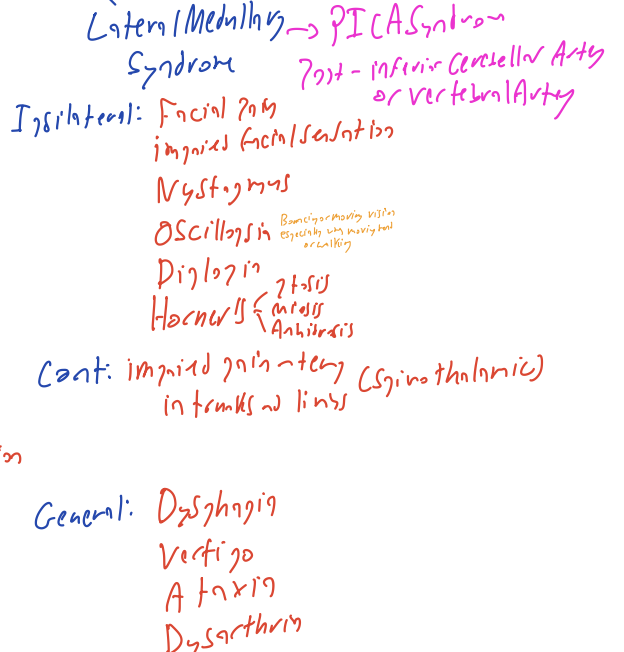 Lateral Medullary → PICA Syndrom
Syndrome
Post-inferior Cerebellar Artery
or vertebral Artery
Ipsilateral: Facial pain
impaired facial sensation
Nystagmus
Oscillopsia
Bouncing or moving vision
especially when moving head
or walking
Diplopia
Horner's
ptosis
miosis
Anhidrosis
Cont: impaired pain-temp (spinothalamic)
in trunks and limbs
General: Dysphagia
Vertigo
Ataxia
Dysarthria